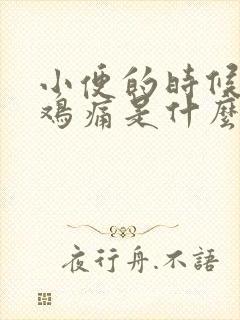 小便的時候
鸡痛是什麼
夜行舟.不語